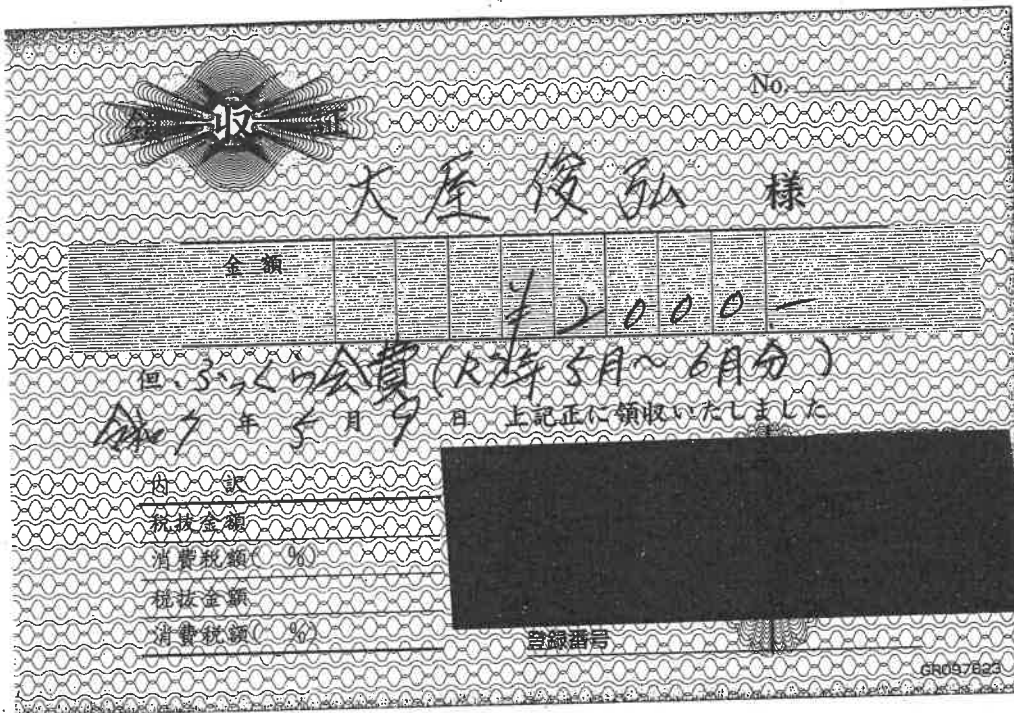 領収証
No.
大屋俊弘 様
金額 ¥2000-
但. ふっくら会費(R7年5月～6月分)
令和7年5月9日 上記正に領収いたしました
内訳
税抜金額
消費税額( %)
税抜金額
消費税額( %)
登録番号
GR097623